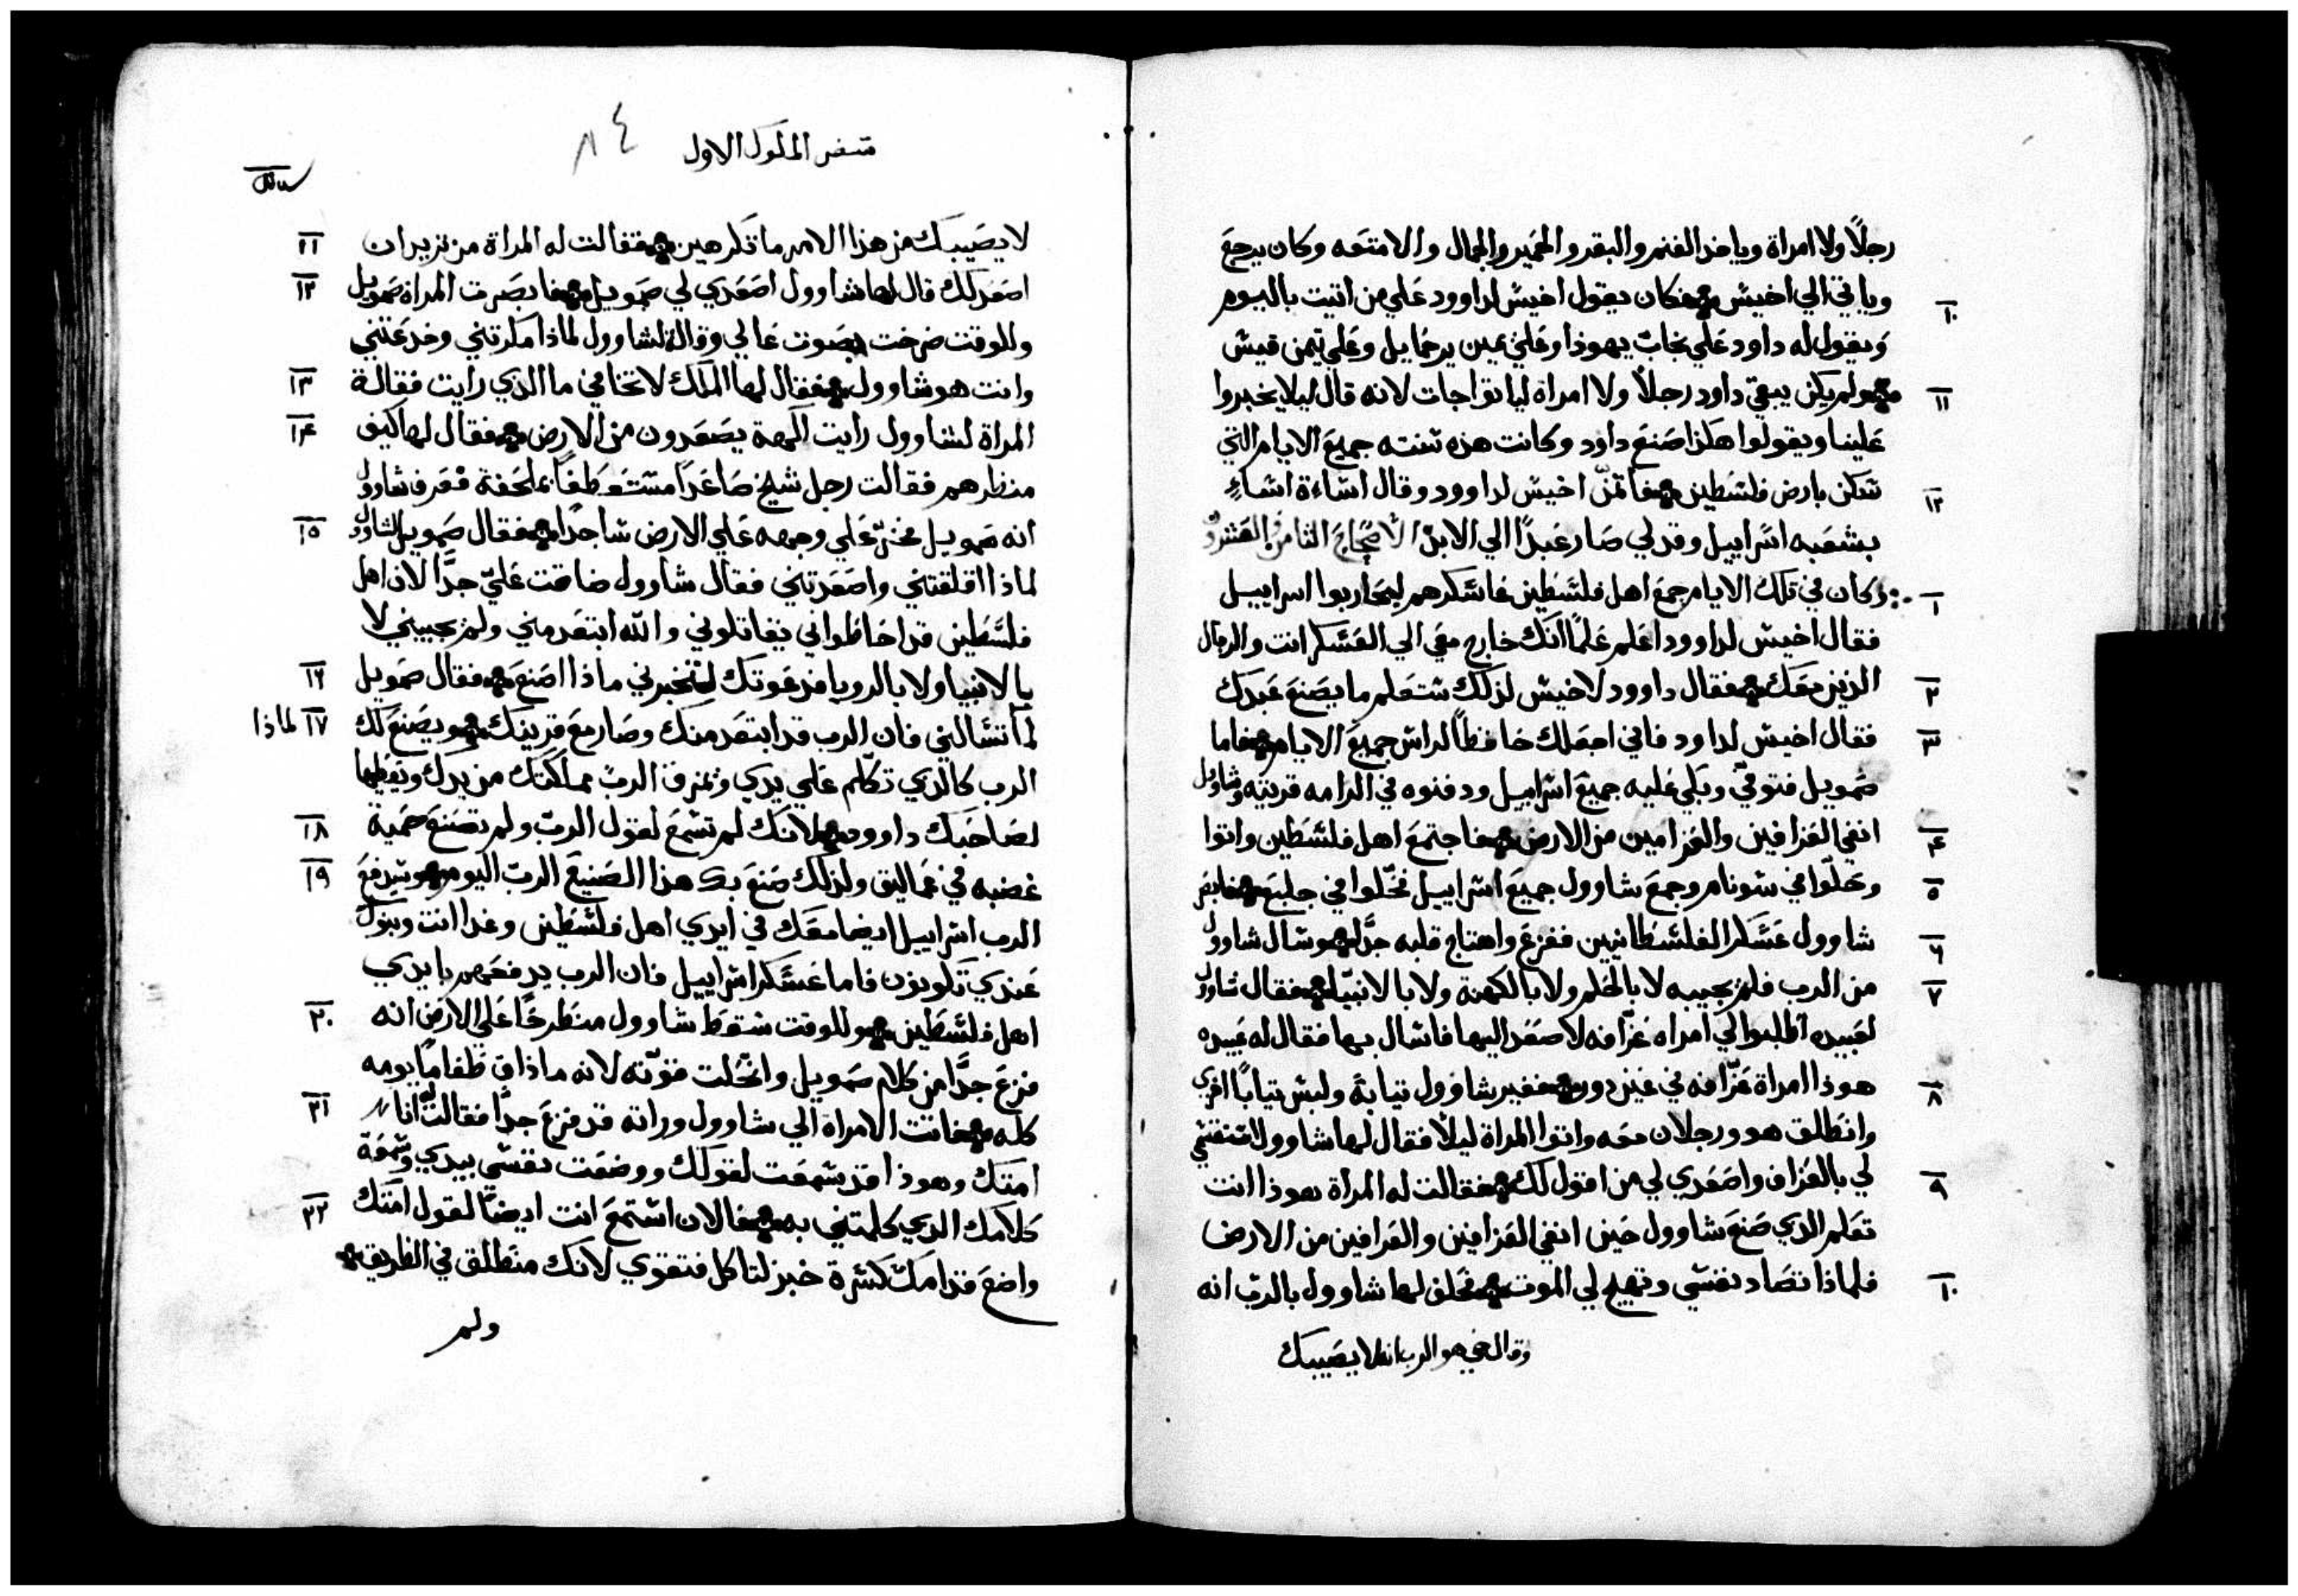 رجلًا ولا امراة وياخد الغنم والبقر والحمير والجمال والامتعه وكان يرجع
وياتي الي اخيش فكان يقول اخيش لداوود علي من اتيت باليوم
١٠
ويقول له داود علي يهوذا وعلي يمين يرحمايل وعلي تيمن قيش
ولم يكن يبقي داود رجلًا ولا امراة لياتوا جات لانه قال ليلا يخبروا
١١
علينا ويقولوا هكذا صنع داود وكانت هذه سنته جميع الايام التي
سكن بارض فلسطين فاتمن اخيش لداوود وقال اساءة اساء
١٢
بشعبه اسراييل وقد لي صار عبدًا الي الابد الاصحاح الثامن والعشرون
وكان في تلك الايام جمع اهل فلسطين عساكرهم ليحاربوا اسراييل
١
فقال اخيش لداوود اعلم علمًا انك خارج معي الي العسكر انت والرجال
الذين معك فقال داوود لاخيش لذلك ستعلم ما يصنع عبدك
٢
فقال اخيش لداود فاني اجعلك حافظًا لراسي جميع الايام فاما
٣
صمويل فتوفي وبكي عليه جميع اسراييل ودفنوه في الرامه قريته وشاوول
انفي العزافين والعرامين من الارض فاجتمع اهل فلسطين واتوا
٤
وحلوا في سونام وجمع شاوول جميع اسراييل فحلوا في جلبع فابصر
٥
شاوول عسكر الفلسطانيين ففزع واهتاج قلبه جدًا وسال شاوول
٦
من الرب فلم يجيبه لا بالحلم ولا بالكهنة ولا بالانبيا فقال شاوول
٧
لعبيده اطلبوا لي امراه عزافه لاصعد اليها فاسال بها فقال له عبيده
هوذا امراة عزافه في عين دور فغير شاوول تيابة ولبس تيابًا اخري
٨
وانطلق هو ورجلان معه واتوا المراة ليلًا فقال لها شاوول
لي بالعراف واصعدي لي من اقول لك فقالت له المراة هوذا انت
٩
تعلم الذي صنع شاوول حين انفي العزافين والعرافين من الارض
فلماذا تصاد نفسي وتهيج لي الموت فحلف لها شاوول بالرب انه
١٠
وقال حي هو الرب انه لا يصيبك
سفر الملوك الاول
٨٤
لا يصيبك من هذا الامر ما تكرهين فقالت له المراة من تريد ان
١١
اصعد لك قال لها شاوول اصعدي لي صمويل فابصرت المراة صمويل
١٢
وللوقت صرخت بصوت عالي وقالة لشاوول لماذا مكرتني وخدعتني
وانت هو شاوول فقال لها الملك لا تخافي ما الذي رايت فقالة
١٣
المراة لشاوول رايت الهة يصعدون من الارض فقال لها كيف
١٤
منظرهم فقالت رجل شيخ صاعدًا مستعطفًا بملحفة فعرف شاوول
انه صمويل فخر علي وجهه علي الارض ساجدًا فقال صمويل لشاوول
١٥
لماذا اقلقتني واصعدتني فقال شاوول ضاقت علي جدًا لان اهل
فلسطين قد احاطوا بي يقاتلوني والله ابتعد مني ولم يجيبني لا
بالانبيا ولا بالرويا فدعوتك لتخبرني ماذا اصنع فقال صمويل
١٦
لما تسالني فان الرب قد ابتعد منك وصار مع قرينك ويصنع لك
١٧ لماذا
الرب كالذي تكلم علي يدي ويمزق الرب مملكتك من يدك ويعطيها
لصاحبك داوود لانك لم تسمع لقول الرب ولم تصنع حمية
١٨
غضبه في عماليق ولذلك صنع بك هذا الصنيع الرب اليوم وسيدفع
١٩
الرب اسراييل ايضا معك في ايدي اهل فلسطين وغدا انت وبنوك
عندي تكونون فاما عسكر اسراييل فان الرب يدفعهم بايدي
اهل فلسطين وللوقت سقط شاوول منطرحًا علي الارض انه
٢٠
فزع جدًا من كلام صمويل وانحلت قوته لانه ما ذاق طعامًا يومه
كله فاتت الامراة الي شاوول وراته قد فزع جدًا فقالت له انا
٢١
امتك وهوذا قد سمعت لقولك ووضعت نفسي بيدي وسمعة
كلامك الذي كلمتني به فالان استمع انت ايضًا لقول امتك
٢٢
واضع قدامك كسرة خبز لتاكل فتقوي لانك منطلق في الطريق
ولم